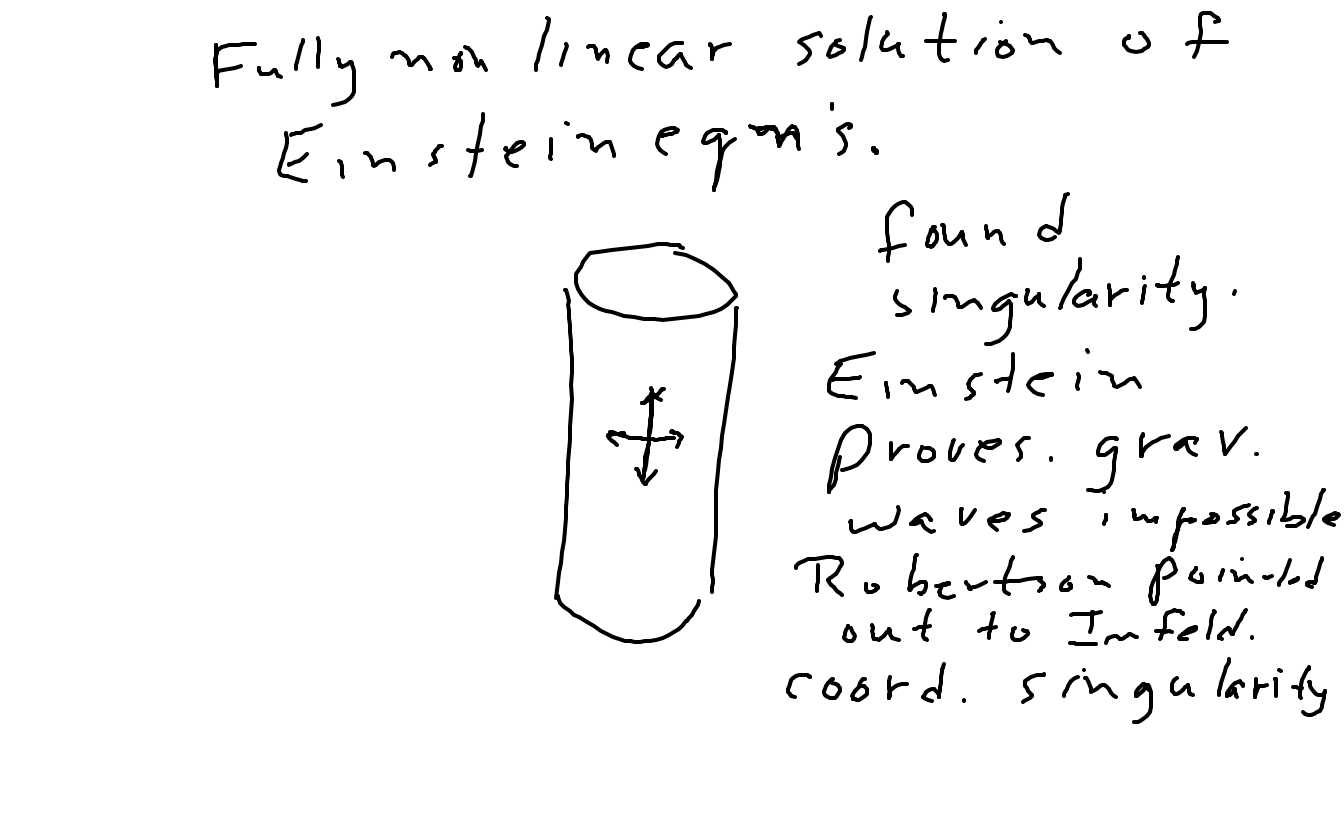 Fully non linear solution of
Einstein eqn's.
found
singularity.
Einstein
Proves. grav.
waves impossible
Robertson pointed
out to Infeld.
coord. singularity